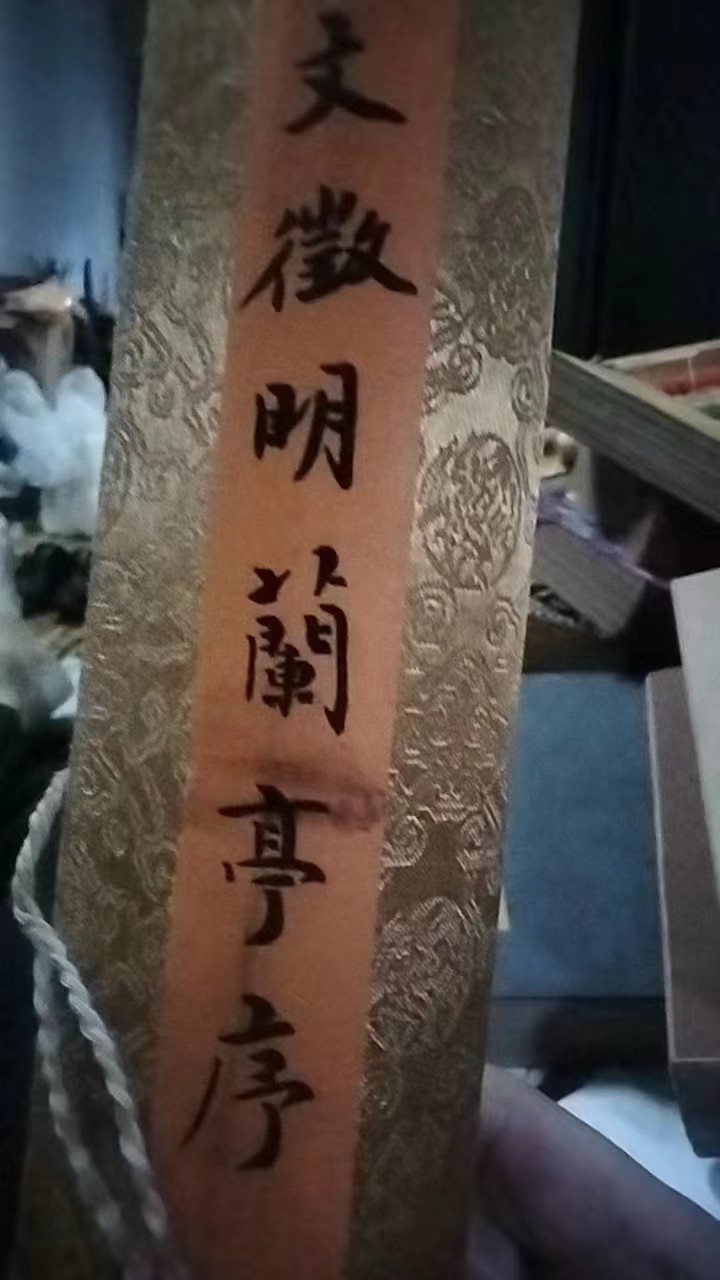 文徵明蘭亭序